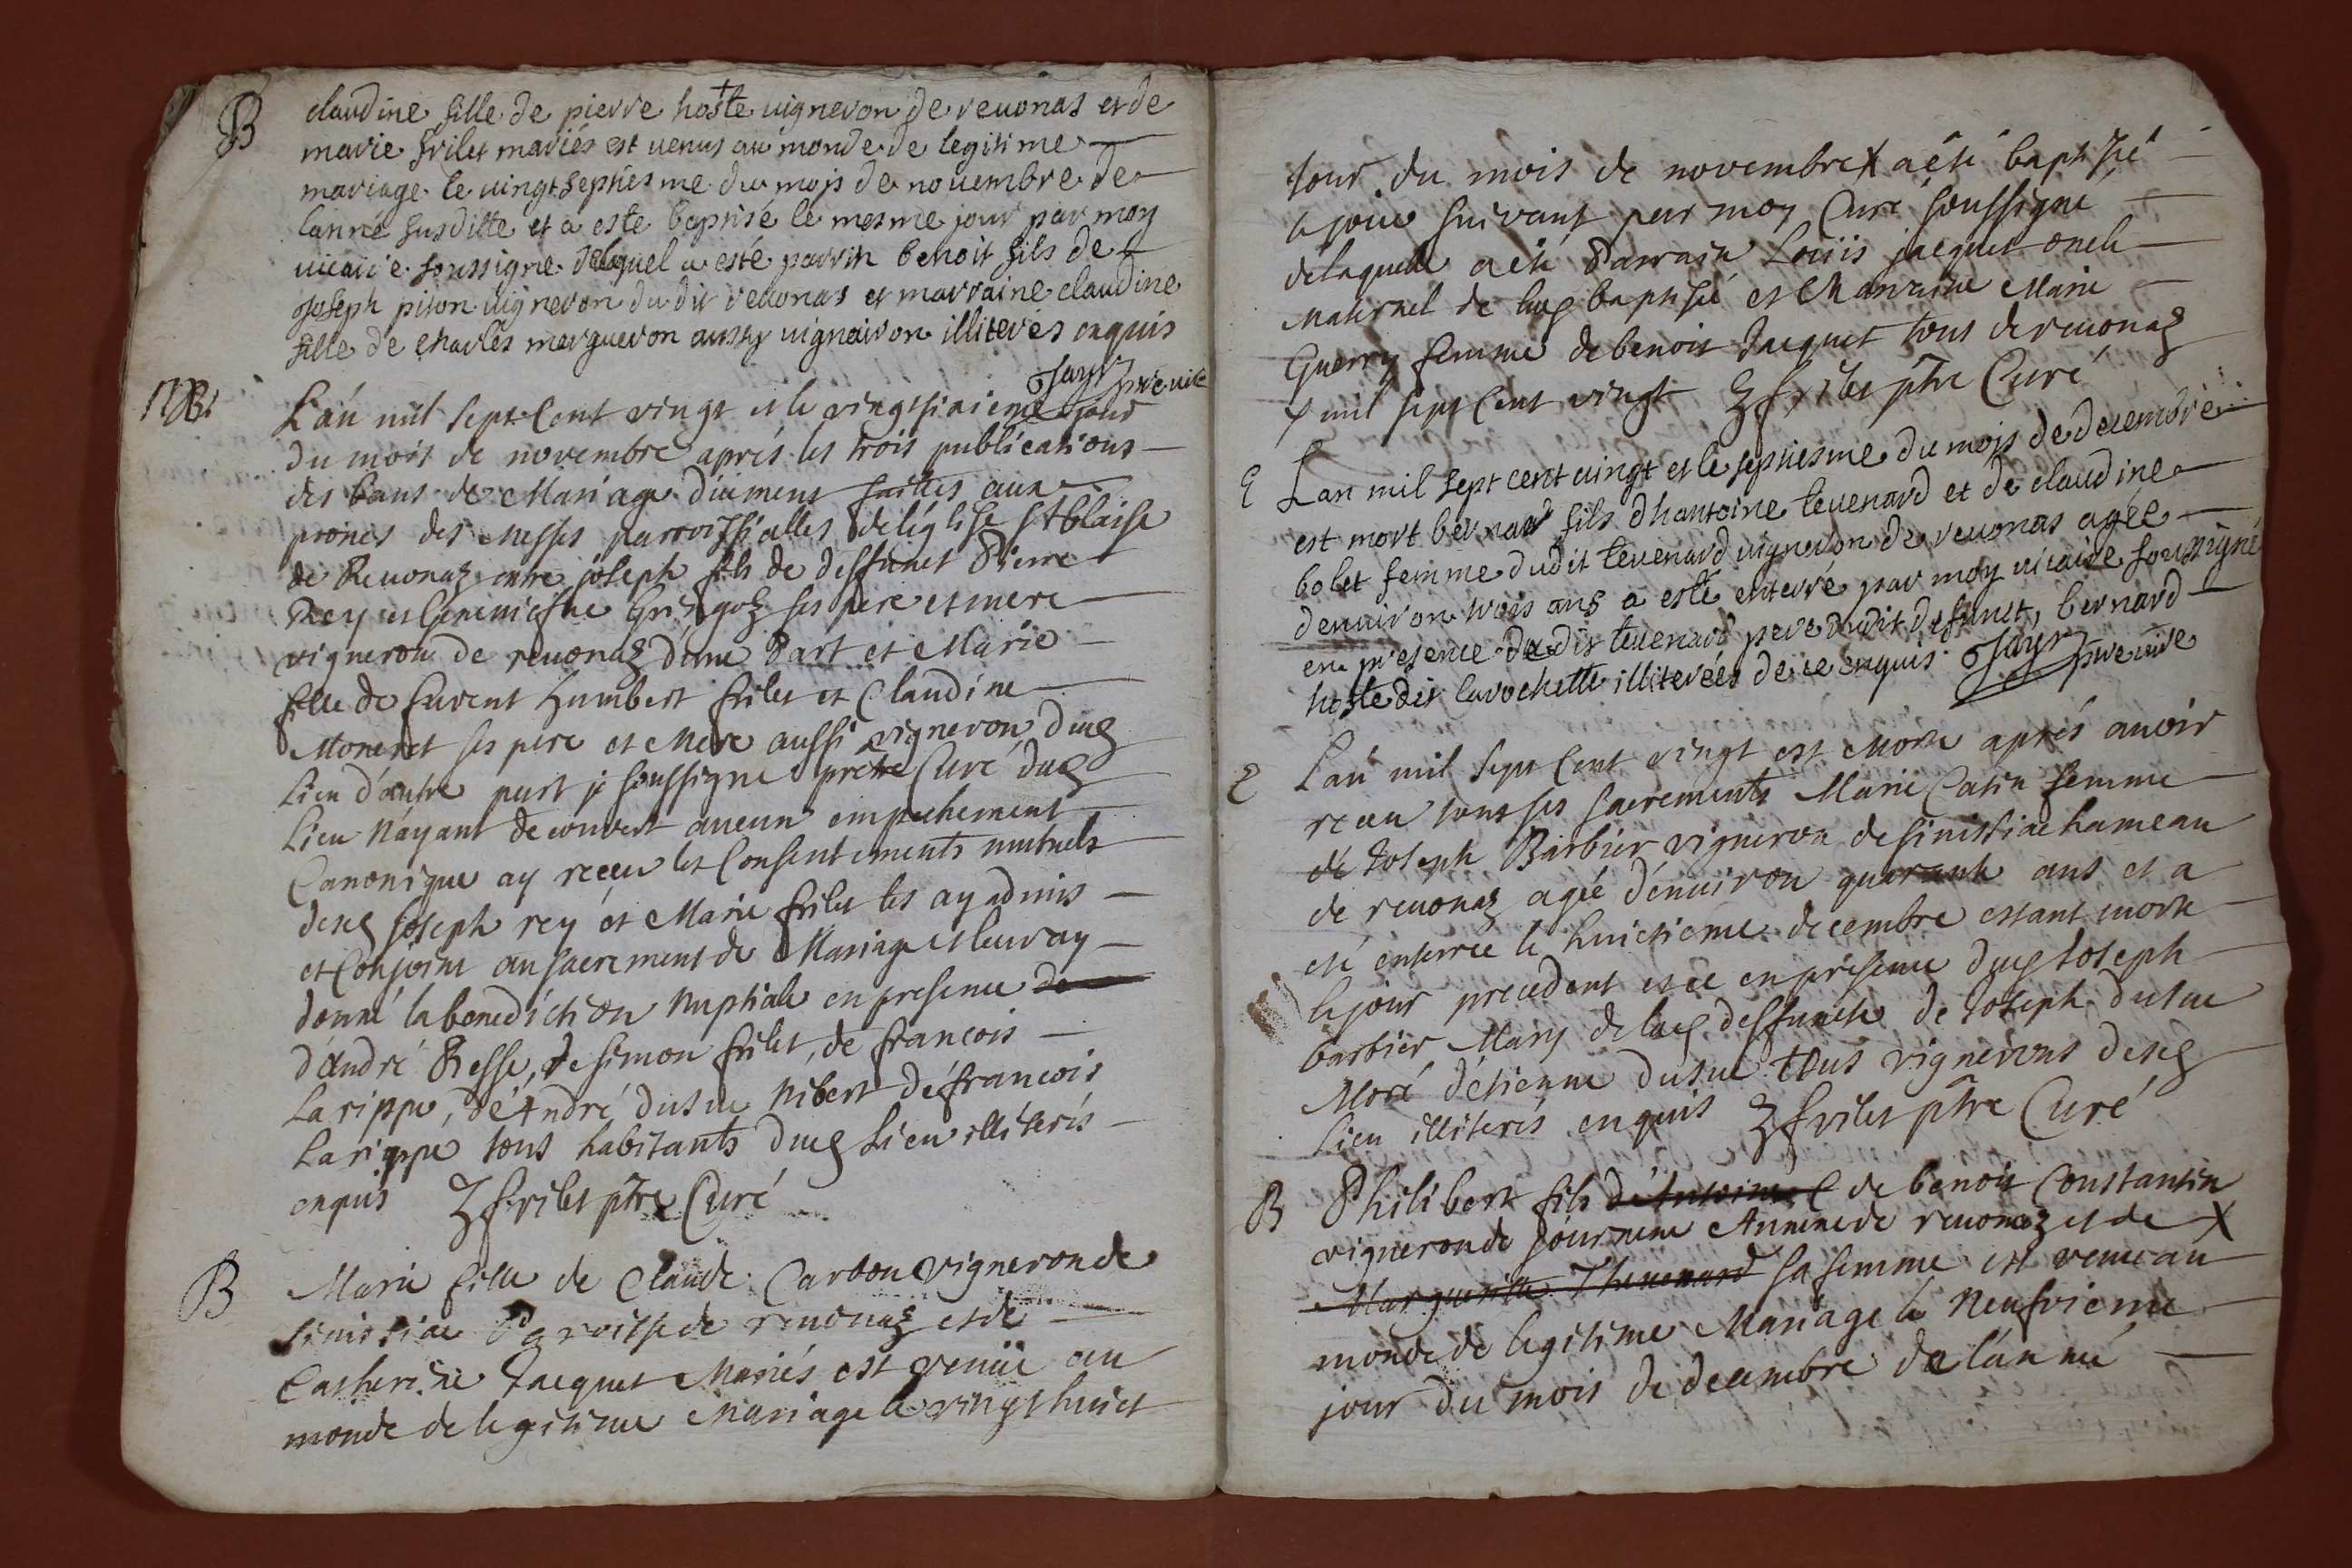 B
claudine fille de pierre hoste vigneron de reuonas et de
marie frilet mariés est uenus au monde de legitime
mariage le uingt septiesme du mois de nouembre de
lanné susditte et a este baptisé le mesme jour par moy
uicaire soussigne delaquel a esté parrin benoit fils de
Joseph piton uigneron du dit reuonas et marraine claudine
fille de charles margueron aussy uignairon illiterés enquis
Jayr pre uic
M
L'an mil sept Cent vingt et le vingtsixieme jour
du mois de novembre aprés les trois publications
des bans de Mariage düement faittes aux
prones des Messes parroissialles deléglise st blaise
de Reuonaz entre joseph fils de deffunct Pierre
Rey et ses pere et mere
vigneron de reuonaz d'une Part et Marie
fille de furent humbert frilet et Claudine
Moneret ses pere et Mere aussi vigneron dud
Lieu d'autre part je soussigne pretre Curé dud
Lieu N'ayant decouvert aucun empechement
Canonique ay receu les Consentements mutuels
desd Joseph rey et Marie frilet les ay admis
et Conjoint au sacrement de Mariage et leur ay
donné la benediction Nuptiale en presence de
d'André Besse, de simon frilet, de francois
Larippe, de André dusue Nibert de francois
Larippe tous habitants dud Lieu illiterés
enquis Z frilet ptre Curé
B
Marie fille de Claude Carbon vigneron de
sinissiac Paroisse de reuonaz et de
Catherine Jacquet Mariés est venüe au
monde de legitime Mariage le vingt huict
jour du mois de novembre X a été baptisé
le jour suivant par moy Curé soussigné
delaquelle a été Parrain Loüis jacquet oncle
Maternel de lad baptisé et Marraine Marie
Guerry femme de benoit Jacquet tous de reuonaz
X mil sept Cent vingt Z frilet ptre Curé
E
Lan mil sept cent uingt et le septiesme du mojs de decembre
est mort bernard fils dhantoine teuenard et de claudine
bolet femme dudit teuenard uigneron de reuonas agée
denuiron trois ans a esté enterré par moy uicaire soussigné
en presence du dit teuenard pere dudit defunct, bernard
hoste dit larochette illiterées de ce enquis Jayr pre uic
E
L'an mil sept Cent vingt est Morte aprés auoir
receu tous ses sacrements Marie Catin femme
de Joseph Barbier vigneron de sinissiac hameau
de reuonaz agée d'enuiron quarante ans et a
été enterrée le huictieme decembre estant morte
le jour precedent et ce en presence dud Joseph
barbier Mary de lad deffuncte de Joseph dusue
Moré d'etienne dusue tous vignerons desd
Lieu illiterés enquis Z frilet ptre Curé
B
Philibert fils d'Antoine C de benoit Constantin
vigneron de reuonaz et de X
Marguerite Theuenard sa femme est venu au
monde de legitime Mariage le Neufvieme
jour du mois de decembre de l'année